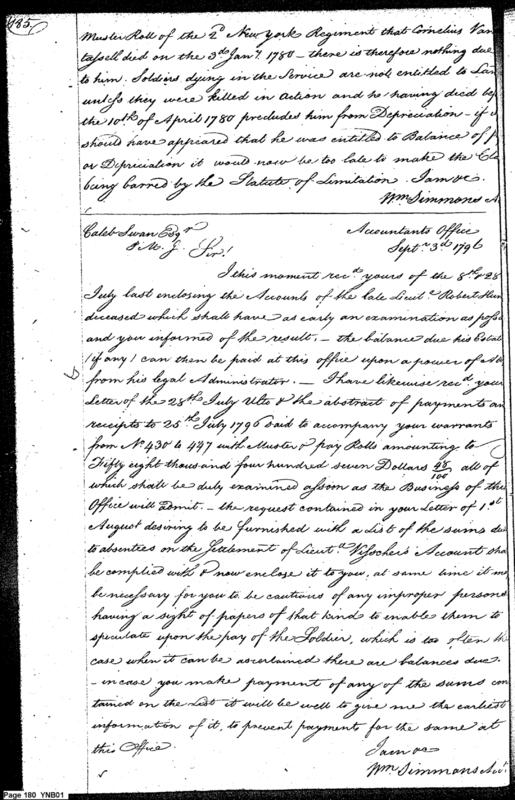 485.
Muster Roll of the 2d New York Regiment that Cornelius Van
tassell died on the 3d Jany. 1780 – there is therefore nothing due
to him. Soldiers dying in the Service are not entitled to Lan
unless they were killed in action and he having died bef
the 10th of April 1780 precludes him from Depreciation – if
should have appeared that he was entitled to Balance of p
or Depriciation it would now be too late to make the Cla
being barred by the Statute of Limitation. I am &c.
Wm Simmons A
Caleb Swan Esqr Accountants Office
P. M. G. Sir! Septr 3d 1796
I this moment recd. yours of the 8th & 28
July last enclosing the Accounts of the late Lieut. Robert
deceased which shall have as early an examination as poss
and you informed of the result. – the balance due his Estat
(if any) can then be paid at this office upon a power of At
from his legal Administrator. – I have likewise recd. your
Letter of the 28th July Ulto & the abstract of payments an
receipts to 25th July 1796 said to accompany your warrants
from No. 430 to 447 with Muster & pay Rolls amounting to
Fifty eight thousand four hundred seven Dollars 48/100 all of
which shall be duly examined as soon as the Business of this
Office will admit. – the request contained in your Letter of 1.st
August desiring to be furnished with a List of the sums due
to absentees on the Settlement of Lieut. Visscher's Account sha
be complied with & now enclose it to you, at same time it m
be necessary for you to be cautious of any improper person
having a sight of papers of that kind to enable them to
speculate upon the pay of the Soldier, which is too often th
case when it can be ascertained there are balances due.
– in case you make payment of any of the sums con
tained on the List it will be well to give me the earliest
information of it, to prevent payments for the same at
this Office. I am &c
Wm Simmons Acct.
Page 180 YNB01